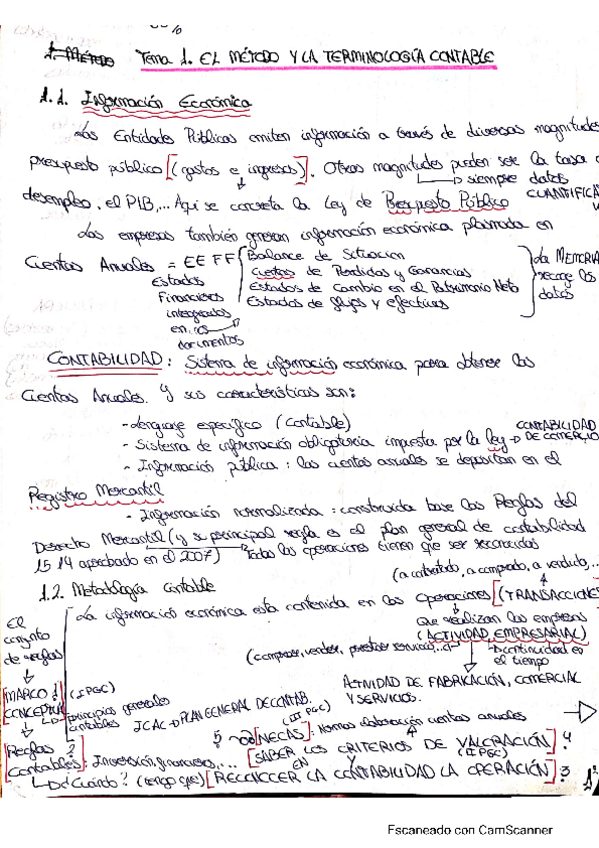 1. MÉTODO Tema 1. EL MÉTODO Y LA TERMINOLOGÍA CONTABLE
1.1. Información Económica
Las Entidades Públicas emiten información a través de diversas magnitudes
presupuesto público [(gastos e ingresos)]. Otras magnitudes pueden ser la tasa
siempre datos
desempleo, el PIB,... Aquí se concreta la Ley de Presupuesto Público CUANTIFICA
Las empresas también generan información económica plasmada en
Cuentas Anuales = EE FF
Balance de Situación
Cuentas de Pérdidas y Ganancias
Estados de Cambio en el Patrimonio Neto
Estados de flujos y efectivos
La MEMORIA
recoge los
datos
Estados
Financieros
integrados
en
documentos
CONTABILIDAD: Sistema de información económica para obtener las
Cuentas Anuales. Y sus características son:
- Lenguaje específico (contable)
- Sistema de información obligatoria impuesta por la ley → CONTABILIDAD DE COMERCIO
- Información pública: las cuentas anuales se depositan en el
Registro Mercantil
- Información normalizada: construida base las Reglas del
Derecho Mercantil (y su principal regla es el plan general de contabilidad
1514 aprobado en el 2007) → Todas las operaciones tienen que ser reconocidas
(a comprado, a vendido,...
1.2. Metodología Contable
La información económica esta contenida en las operaciones [(TRANSACCIONES
que realizan las empresas
(ACTIVIDAD EMPRESARIAL)
(comprar, vender, prestar servicios...)
continuidad en
el tiempo
ACTIVIDAD DE FABRICACIÓN, COMERCIAL
Y SERVICIOS.
El
conjunto
de reglas
[MARCO CONCEPTUAL] 1 (I PGC)
principios generales
contables ICAC → PLAN GENERAL DE CONTAB.
(II PGC)
5 [NECAS]: Normas elaboración cuentas anuales
[Reglas Contables] 2: Inversión, financiación,... [SABER LOS CRITERIOS DE VALORACIÓN] 4
EN (II PGC)
De Cuándo? (tengo que) [RECONOCER LA CONTABILIDAD LA OPERACIÓN] 3
Escaneado con CamScanner